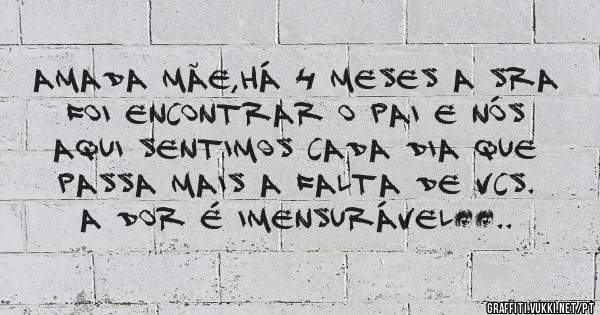 AMADA MÃE,HÁ 4 MESES A SRA
FOI ENCONTRAR O PAI E NÓS
AQUI SENTIMOS CADA DIA QUE
PASSA MAIS A FALTA DE VCS.
A DOR É IMENSURÁVEL..
GRAFFITI.VUKKI.NET/PT